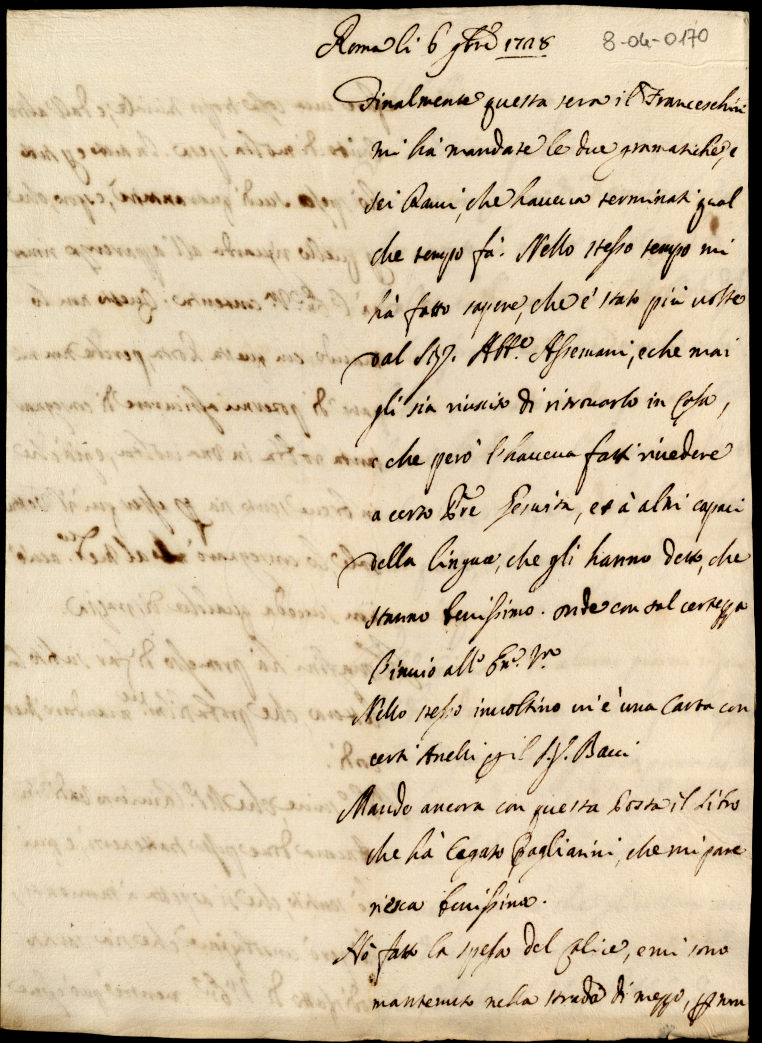 Roma li 6 9bre 1728
8-04-0170
Finalmente questa sera il Franceschini
mi hà mandate le due gramatiche, e
sei Rami, che haveva terminati qual
che tempo fà. Nello stesso tempo mi
hà fatto sapere, che è stato più volte
dal Sig. Abb.e Assemani, e che mai
gli sia riuscito di ritrovarlo in Casa,
e che però l'haveva fatti rivedere
a certo Pre Gesuita, et à altri capaci
della lingua, che gli hanno detto, che
stanno benissimo. onde con tal certezza
l'invio all' Em. Vr.
Nello stesso involtino vi è una Carta con
certi Anelli p il Sig. Bacci
Mando ancora con questa Posta il Libro
che hà legato Pagliarini, che mi pare
riesca benissimo.
Hò fatto la spesa del Calice, e mi sono
mantenuto nella strada di mezzo, p non